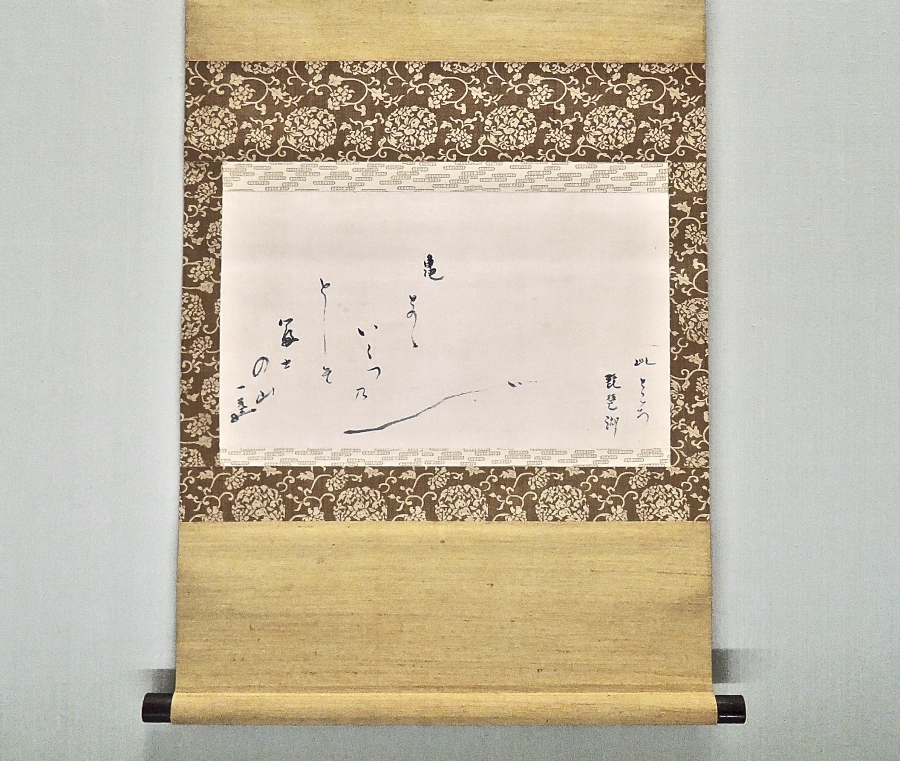 此ところ
琵琶湖
亀とのゝ
いくつ乃
としそ
冨士
の山